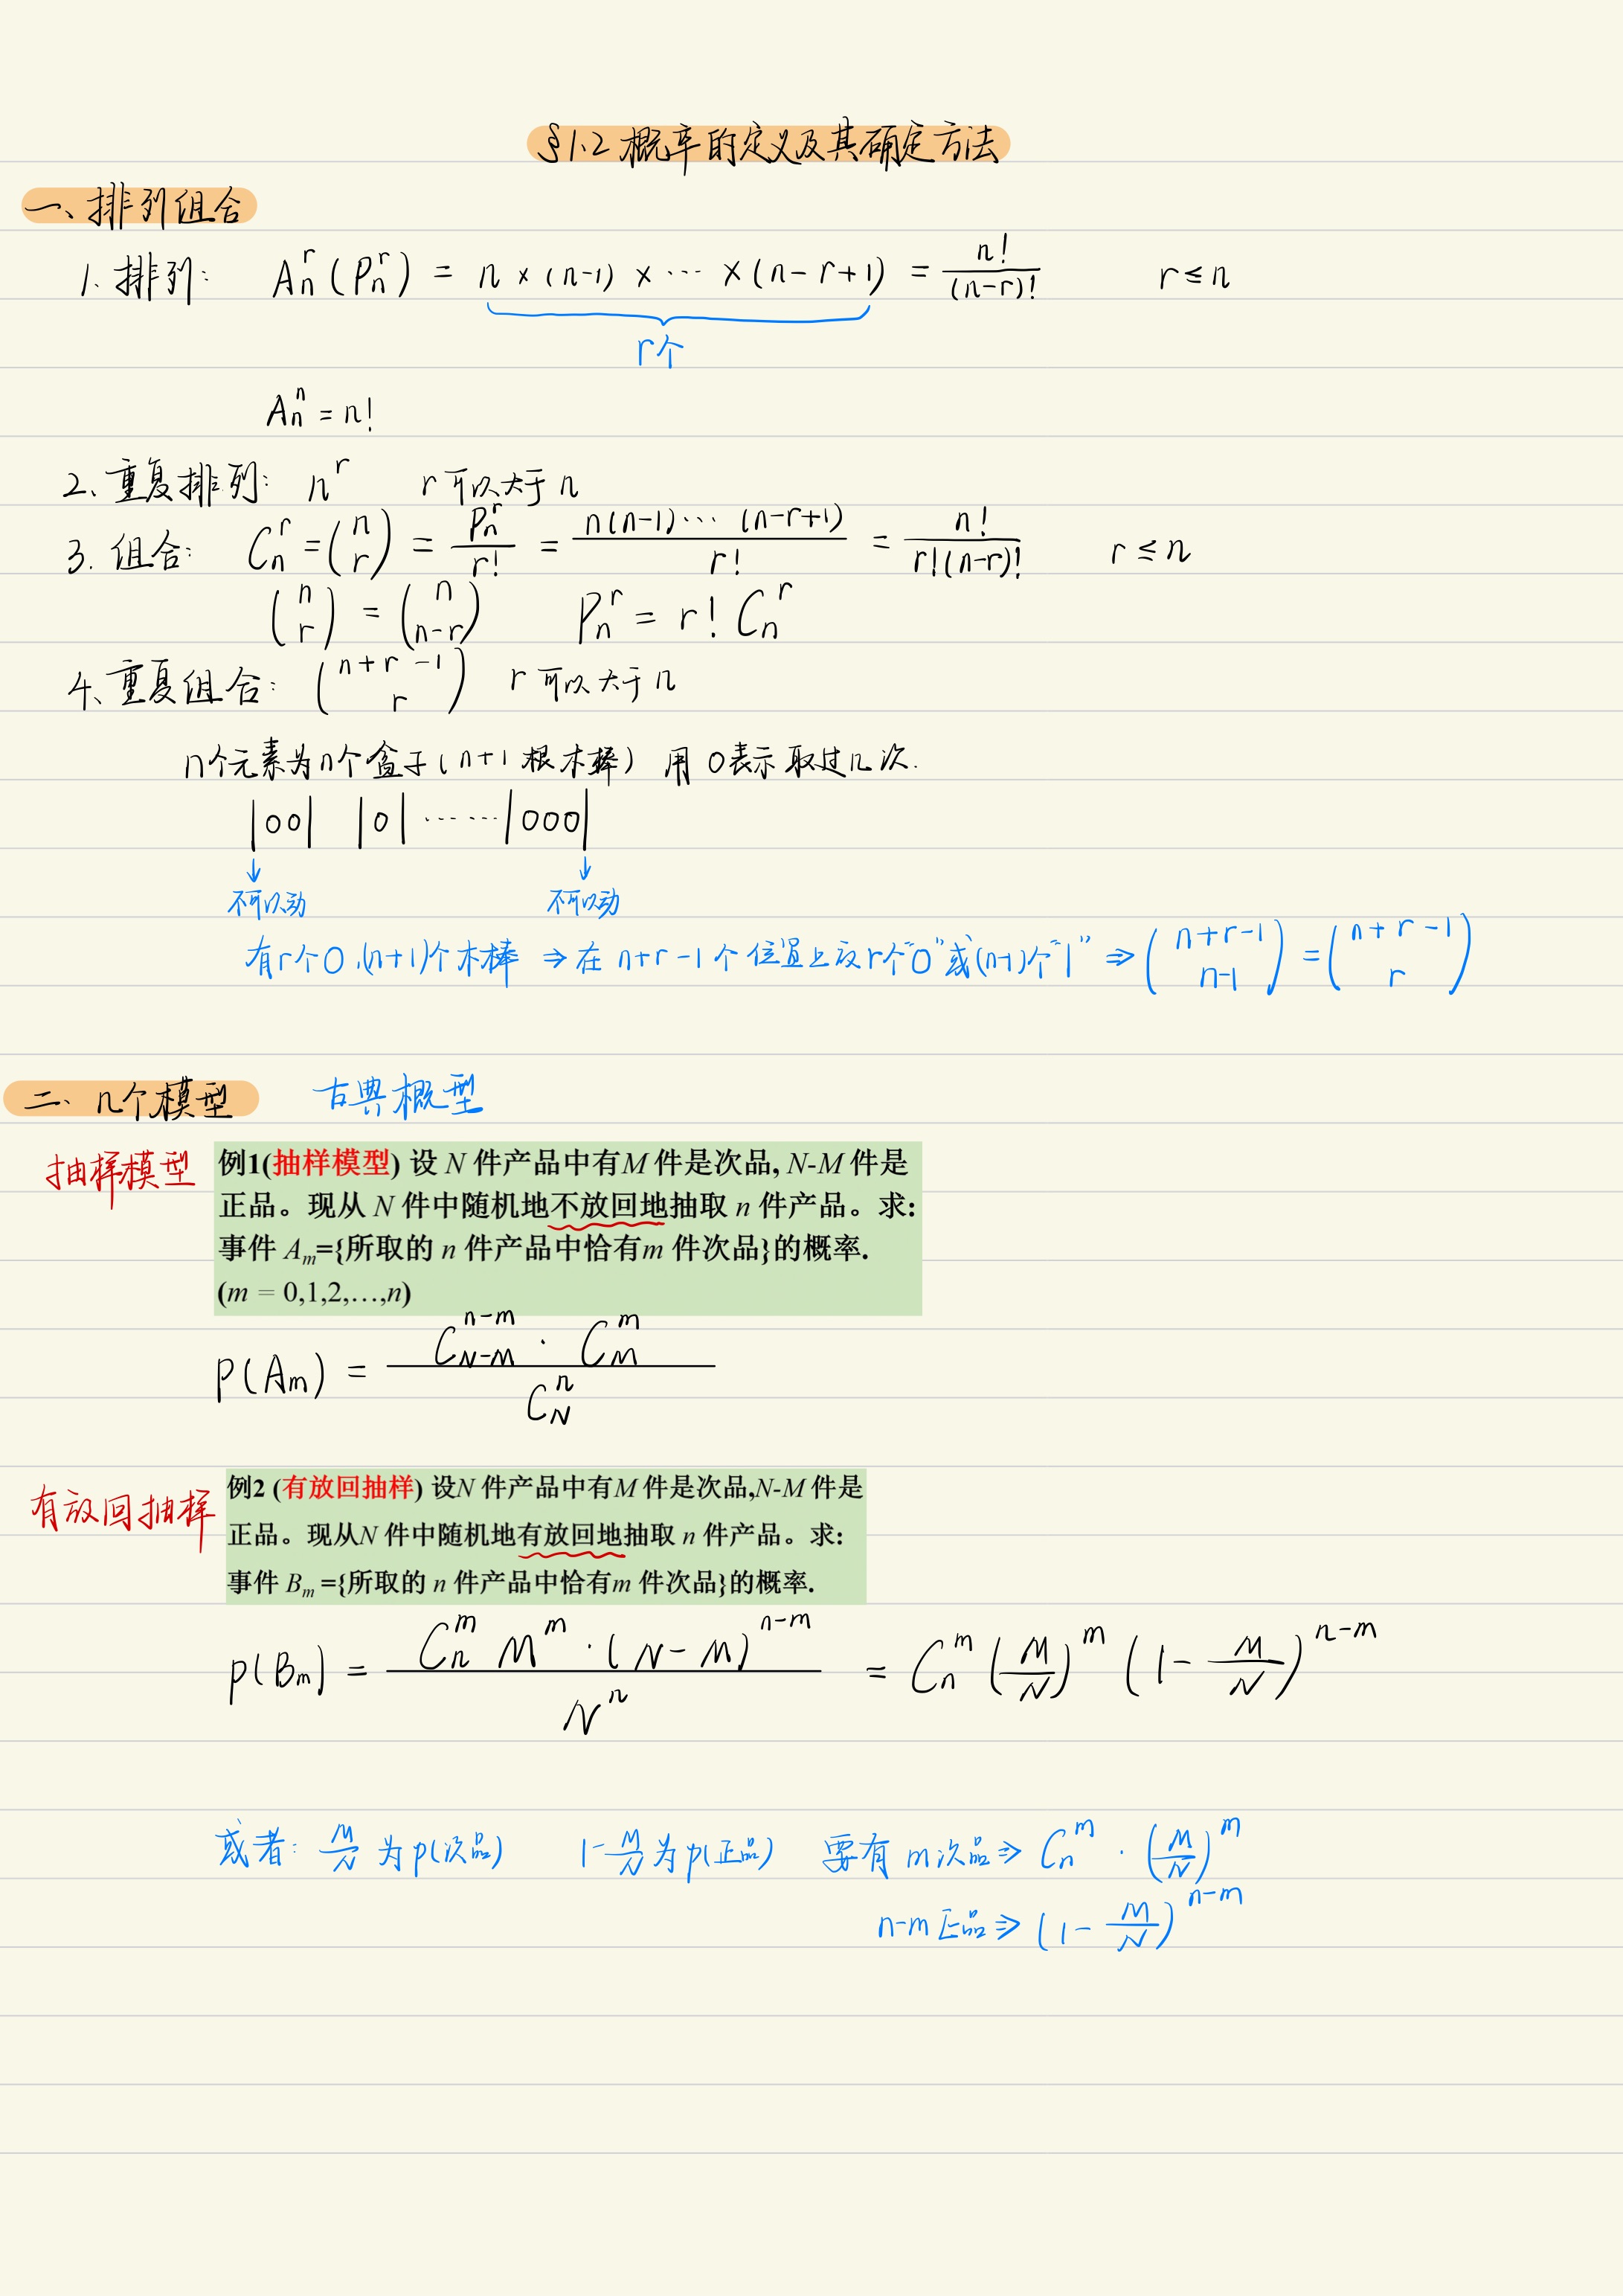 §1.2 概率的定义及其确定方法
一、排列组合
1. 排列: A_n^r (P_n^r) = n × (n-1) × ··· × (n-r+1) = n!/(n-r)! r≤n
r个
A_n^n = n!
2、重复排列: n^r r可以大于n
3. 组合: C_n^r = (n r) = P_n^r/r! = n(n-1)···(n-r+1)/r! = n!/r!(n-r)! r≤n
(n r) = (n n-r) P_n^r = r! C_n^r
4、重复组合: (n+r-1 r) r可以大于n
n个元素为n个盒子(n+1根木棒) 用0表示取过几次.
|00| |0| ······ |000|
↓ ↓
不可以动 不可以动
有r个0,(n+1)个木棒 ⇒ 在 n+r-1个位置上放r个"0"或(n-1)个"1" ⇒ (n+r-1 n-1) = (n+r-1 r)
二、几个模型 古典概型
抽样模型
例1(抽样模型) 设 N 件产品中有M 件是次品, N-M 件是
正品。现从 N 件中随机地不放回地抽取 n 件产品。求:
事件 A_m={所取的 n 件产品中恰有m 件次品}的概率.
(m = 0,1,2,…,n)
P(A_m) = C_{N-M}^{n-m} · C_M^m / C_N^n
有放回抽样
例2 (有放回抽样) 设N 件产品中有M 件是次品,N-M 件是
正品。现从N 件中随机地有放回地抽取 n 件产品。求:
事件 B_m ={所取的 n 件产品中恰有m 件次品}的概率.
P(B_m) = C_n^m M^m · (N-M)^{n-m} / N^n = C_n^m (M/N)^m (1- M/N)^{n-m}
或者: M/N 为p(次品) 1-M/N 为p(正品) 要有m次品⇒ C_n^m · (M/N)^m
n-m正品⇒ (1- M/N)^{n-m}